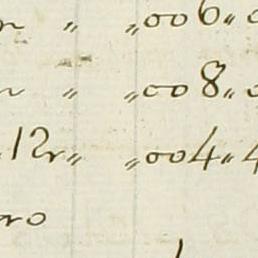 „ „006„
„ „008„
12r„ „004„4
ro